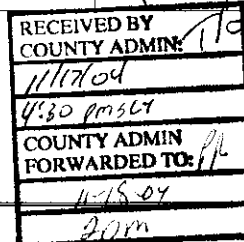 RECEIVED BY
COUNTY ADMIN:
11/17/04
4:30 pm SLY
COUNTY ADMIN
FORWARDED TO:
11-18-04